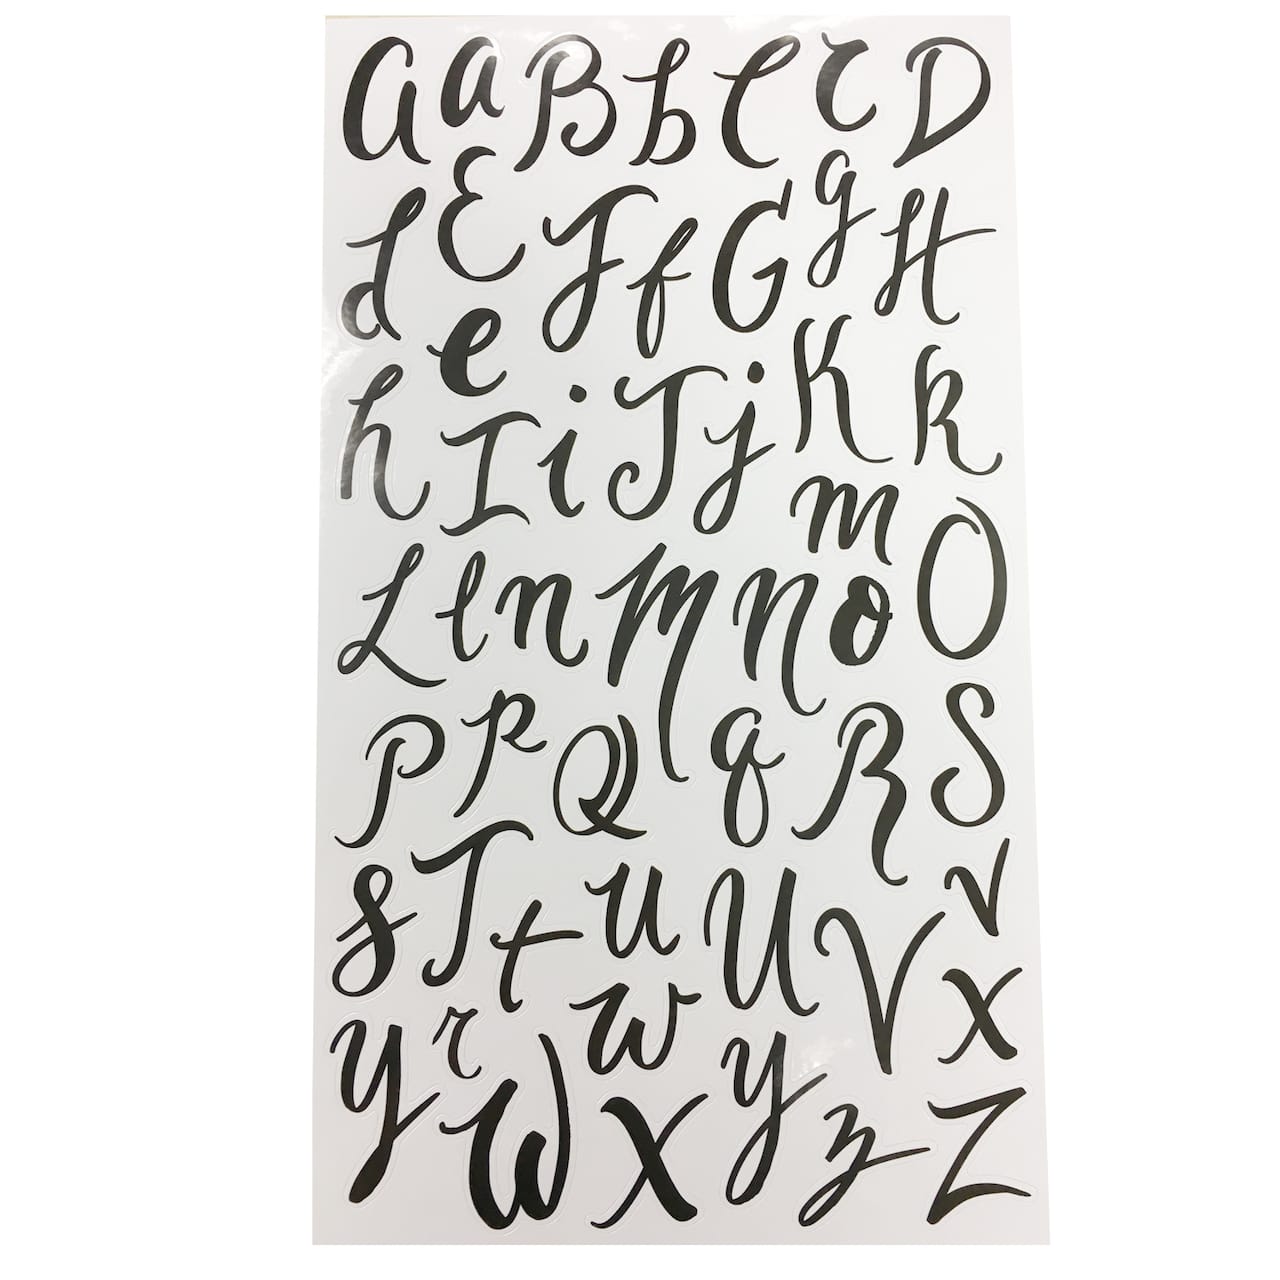 A a B b C c D
d E F f G g H
h e I i J j K k
L l n M N m o O
P p Q q R S
s T t u U V v
y r w x
W X y z Z